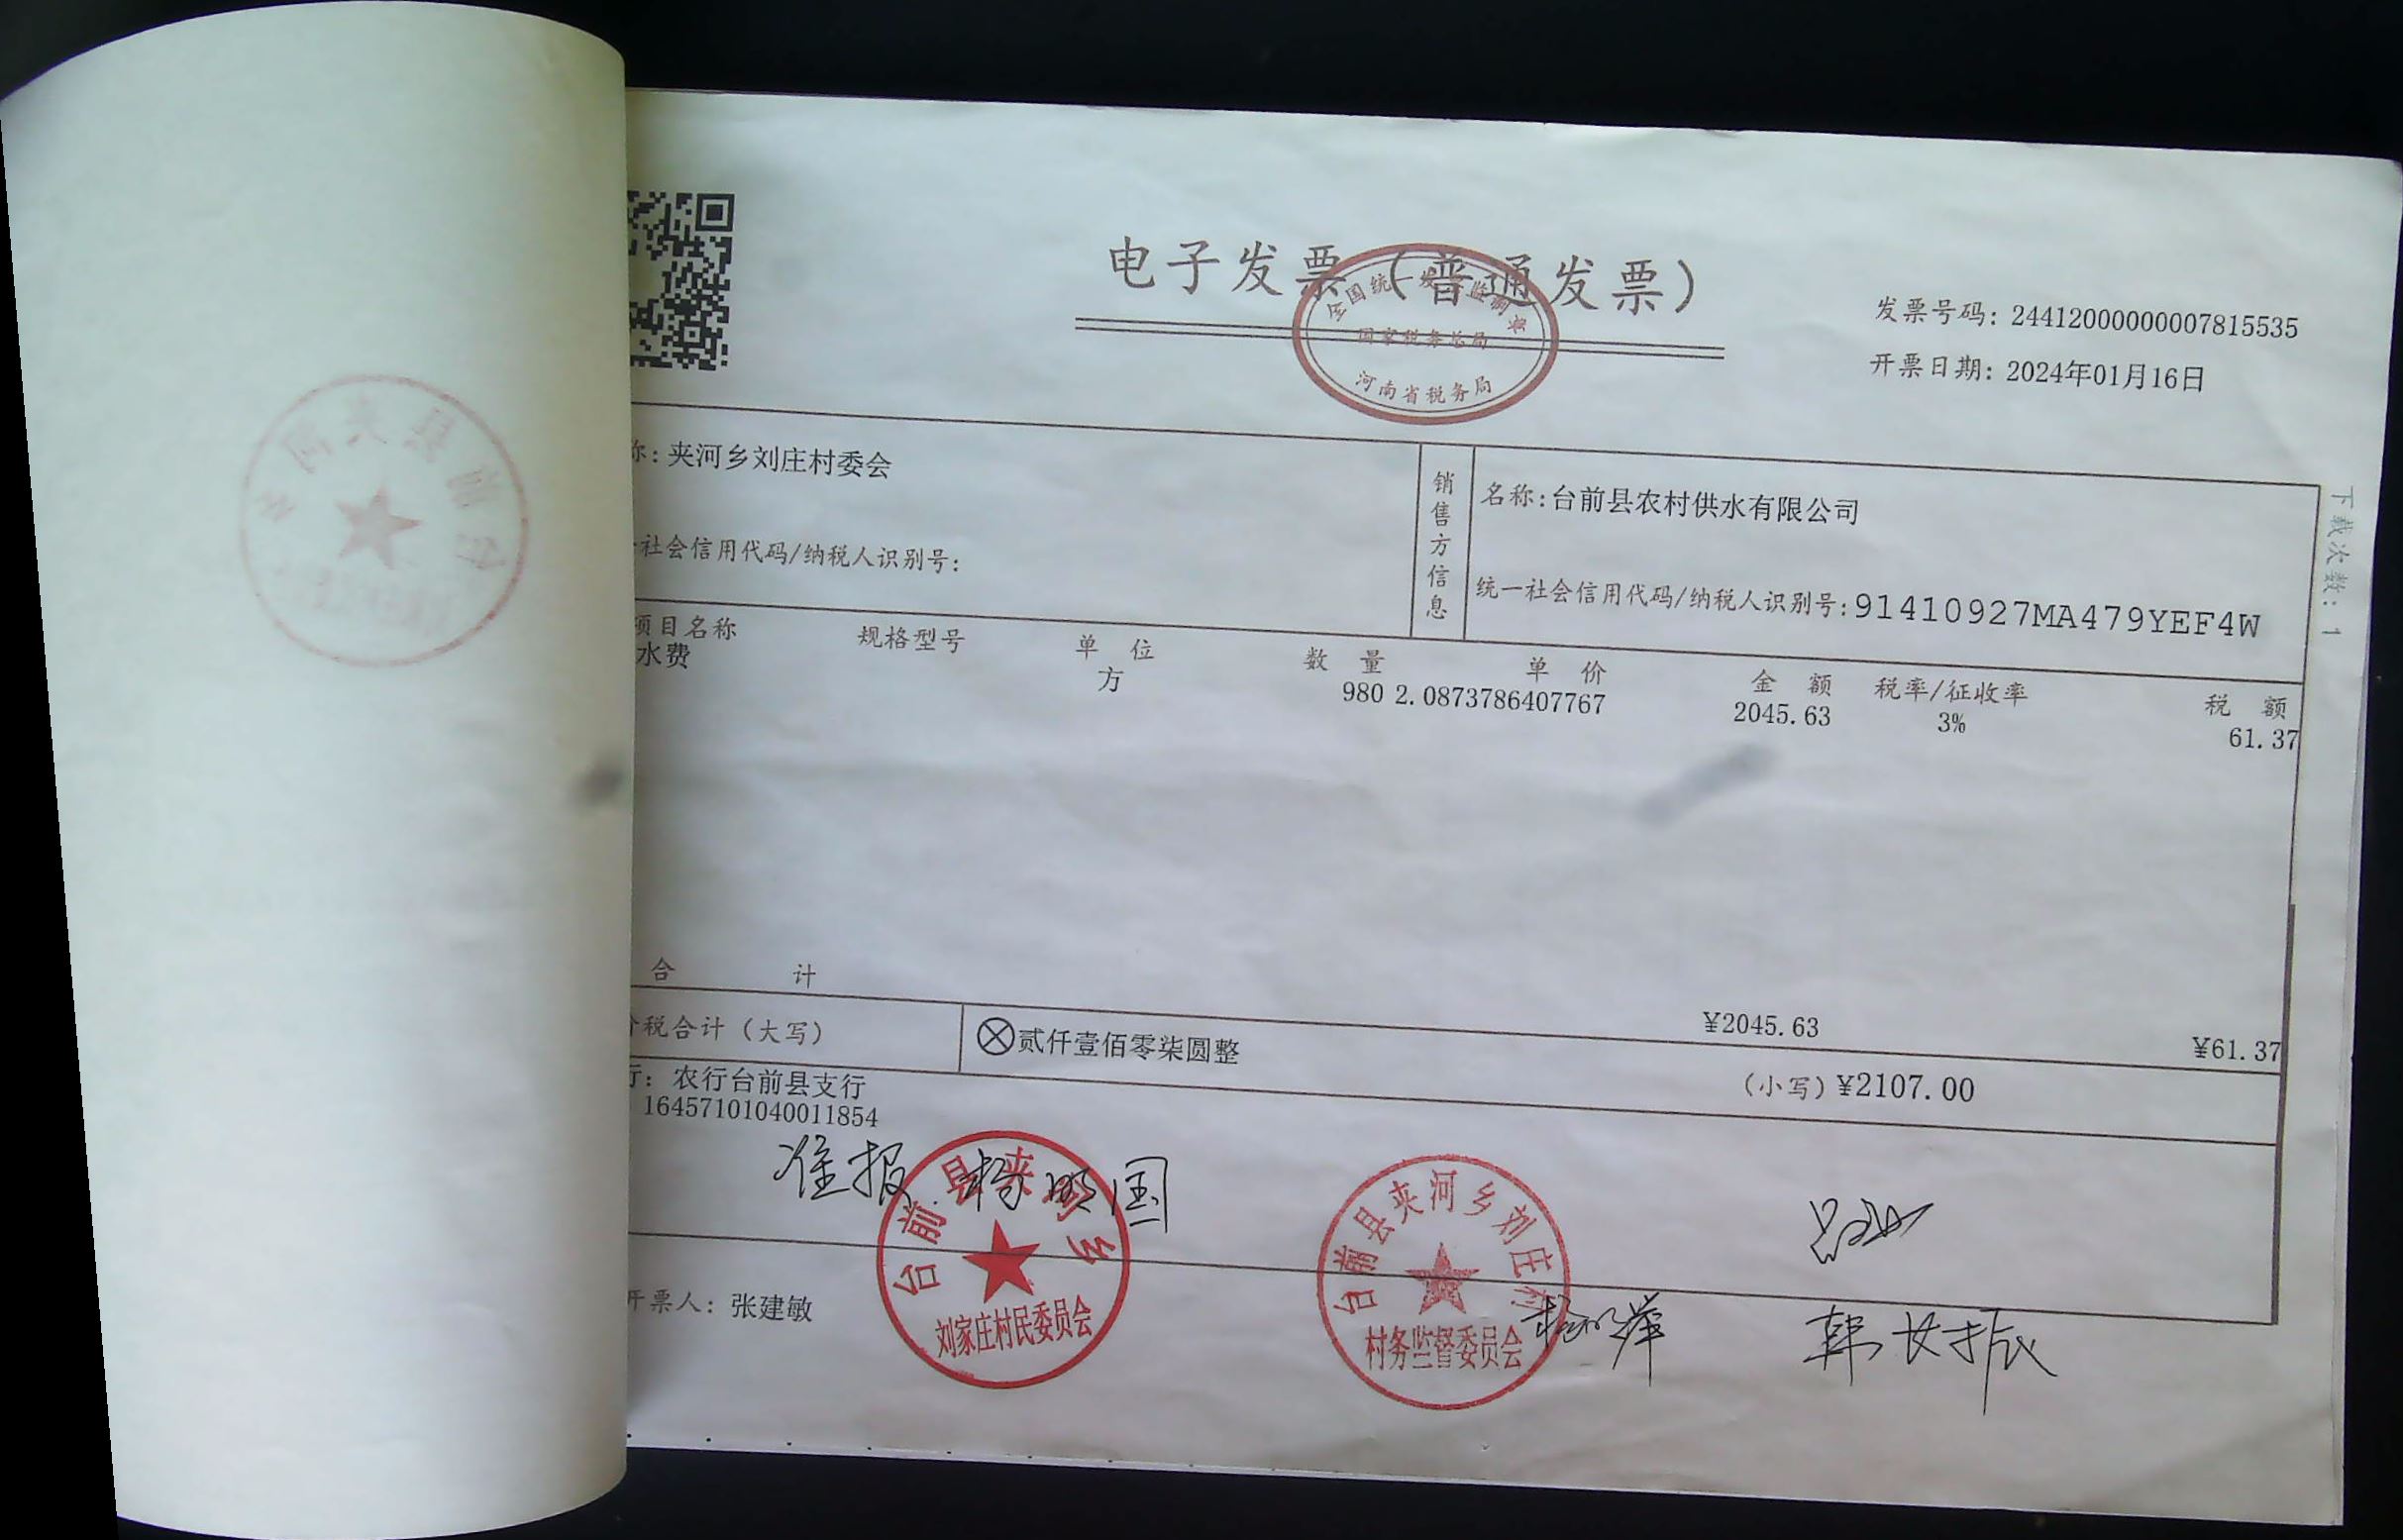 电子发票（普通发票）
全国统一发票监制章
国家税务总局
河南省税务局
发票号码：24412000000007815535
开票日期：2024年01月16日
称：夹河乡刘庄村委会
社会信用代码/纳税人识别号：
销售方信息
名称：台前县农村供水有限公司
统一社会信用代码/纳税人识别号：91410927MA479YEF4W
下载次数：1
项目名称 规格型号 单位 数量 单价 金额 税率/征收率 税额
水费 方 980 2.0873786407767 2045.63 3% 61.37
合计 ¥2045.63 ¥61.37
价税合计（大写） ⊗贰仟壹佰零柒圆整 （小写）¥2107.00
行：农行台前县支行
16457101040011854
准报 杨明国
台前县夹河乡
刘家庄村民委员会
台前县夹河乡刘庄村
村务监督委员会
韩长振
开票人：张建敏